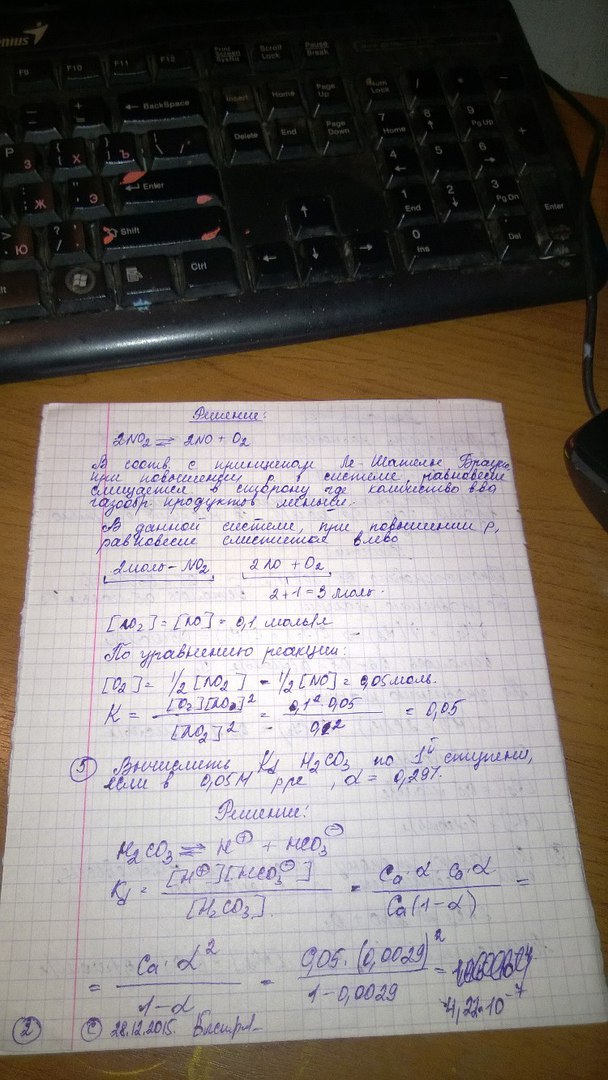 enius
F9 F10 F11 F12 Print Screen SysRq Scroll Lock Pause Break
BackSpace Insert Home Page Up Num Lock / * -
Delete End Page Down 7 Home 8 9 Pg Up +
Enter 4 5 6
Shift 1 End 2 3 Pg Dn Enter
Ctrl 0 Ins Del
Решение:
2NO₂ ⇌ 2NO + O₂
В соотв с принципом Ле-Шателье Брауна
при повышении p в системе, равновесие
смещается в сторону где количество в-ва
газообр. продуктов меньше.
В данной системе, при повышении p,
равновесие сместится влево
2моль - NO₂ 2NO + O₂
2+1=3 моль.
[NO₂] = [NO] = 0,1 моль/л
По уравнению реакции:
[O₂] = 1/2 [NO₂] = 1/2 [NO] = 0,05моль.
K = [O₂][NO₂]² / [NO₂]² = 0,1²·0,05 / 0,1² = 0,05
⑤ Вычислить Kd H₂CO₃ по 1й ступени,
если в 0,05М р-ре, α = 0,29%.
Решение:
H₂CO₃ ⇌ H⁺ + HCO₃⁻
Kd = [H⁺][HCO₃⁻] / [H₂CO₃] = Ca·α·Ca·α / Ca(1-α) =
= Ca·α² / 1-α = 0,05·(0,0029)² / 1-0,0029 =
4,22·10⁻⁷
② © 28.12.2015.